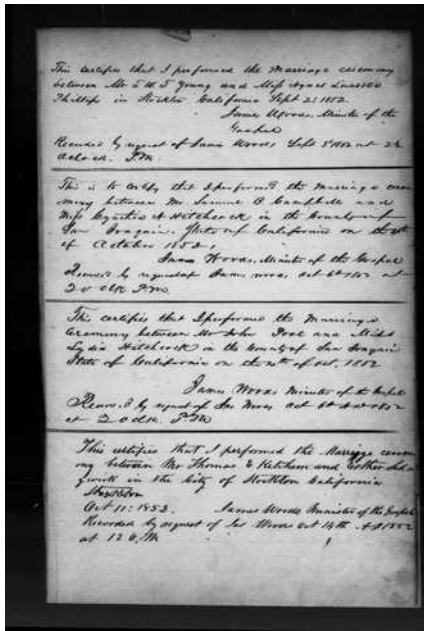 This certifies that I performed the marriage ceremony
between Mr and Miss Agnes
Phillips in Stockton California Sept 2d 1852.
James Woods, Minister of the
Gospel
Recorded by request of James Woods Sept 3d 1852 at
Oclock. P.M.
This is to certify that I performed the marriage cere
mony between Mr Samuel Campbell and
Miss Cynthia A Hitchcock in the County of
San Joaquin, State of California on the
of October 1852.
James Woods, Minister of the Gospel
Record by request of James Woods Oct 6th 1852 at
2 o clk P.M.
This certifies that I performed the marriage
Ceremony between Mr John and Miss
Lydia Hitchcock in the County of San Joaquin
State of California on the of Oct. 1852
James Woods Minister of the Gospel
Record by request of Jas Woods Oct 6th AD 1852
at 2 o clk. P.M.
This certifies that I performed the Marriage cerem
ony between Mr Thomas E Ketcham and Esther
in the City of Stockton California
Stockton
Oct 11: 1852. James Woods Minister of the Gospel
Recorded by request of Jas Woods Oct 14th AD 1852
at 12 M